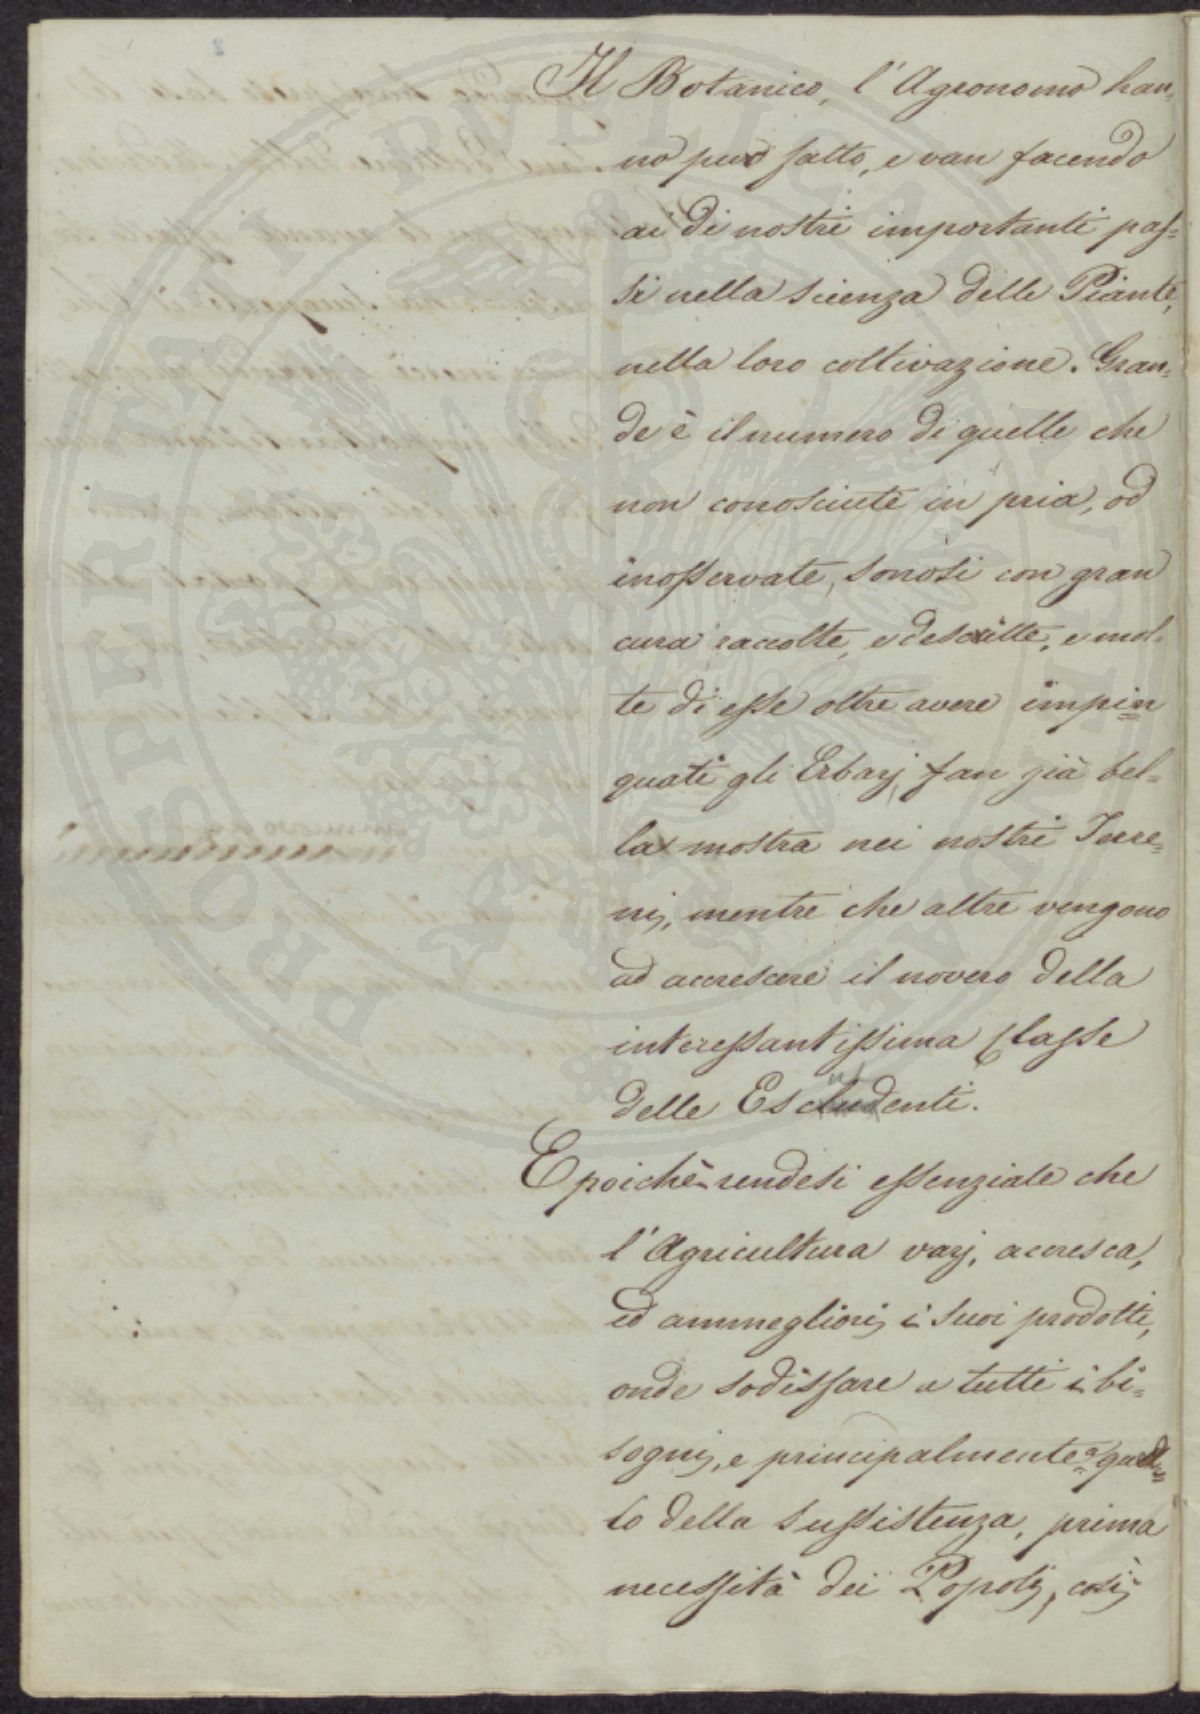 Il Botanico, l'Agronomo han-
no pur fatto, e van facendo
ai dì nostri importanti pas=
si nella scienza delle Piante,
nella loro coltivazione. Gran=
de è il numero di quelle che
non conosciute in pria, od
inosservate, sonosi con gran
cura raccolte, e descritte, e mol-
te di esse oltre avere impin
guati gli Erbarj, fan già bel=
la mostra nei nostri Terre=
nj, mentre che altre vengono
ad accrescere il novero della
interessantissima Classe
delle Esculenti.
E poichè rendesi essenziale che
l'Agricultura varj, accresca,
ed ammegliorj i suoi prodotti,
onde sodisfare a tutti i bi=
sognj, e principalmente a quel=
lo della sussistenza, prima
necessità dei Popolj, così
PROSPERITATI PVBLICAE